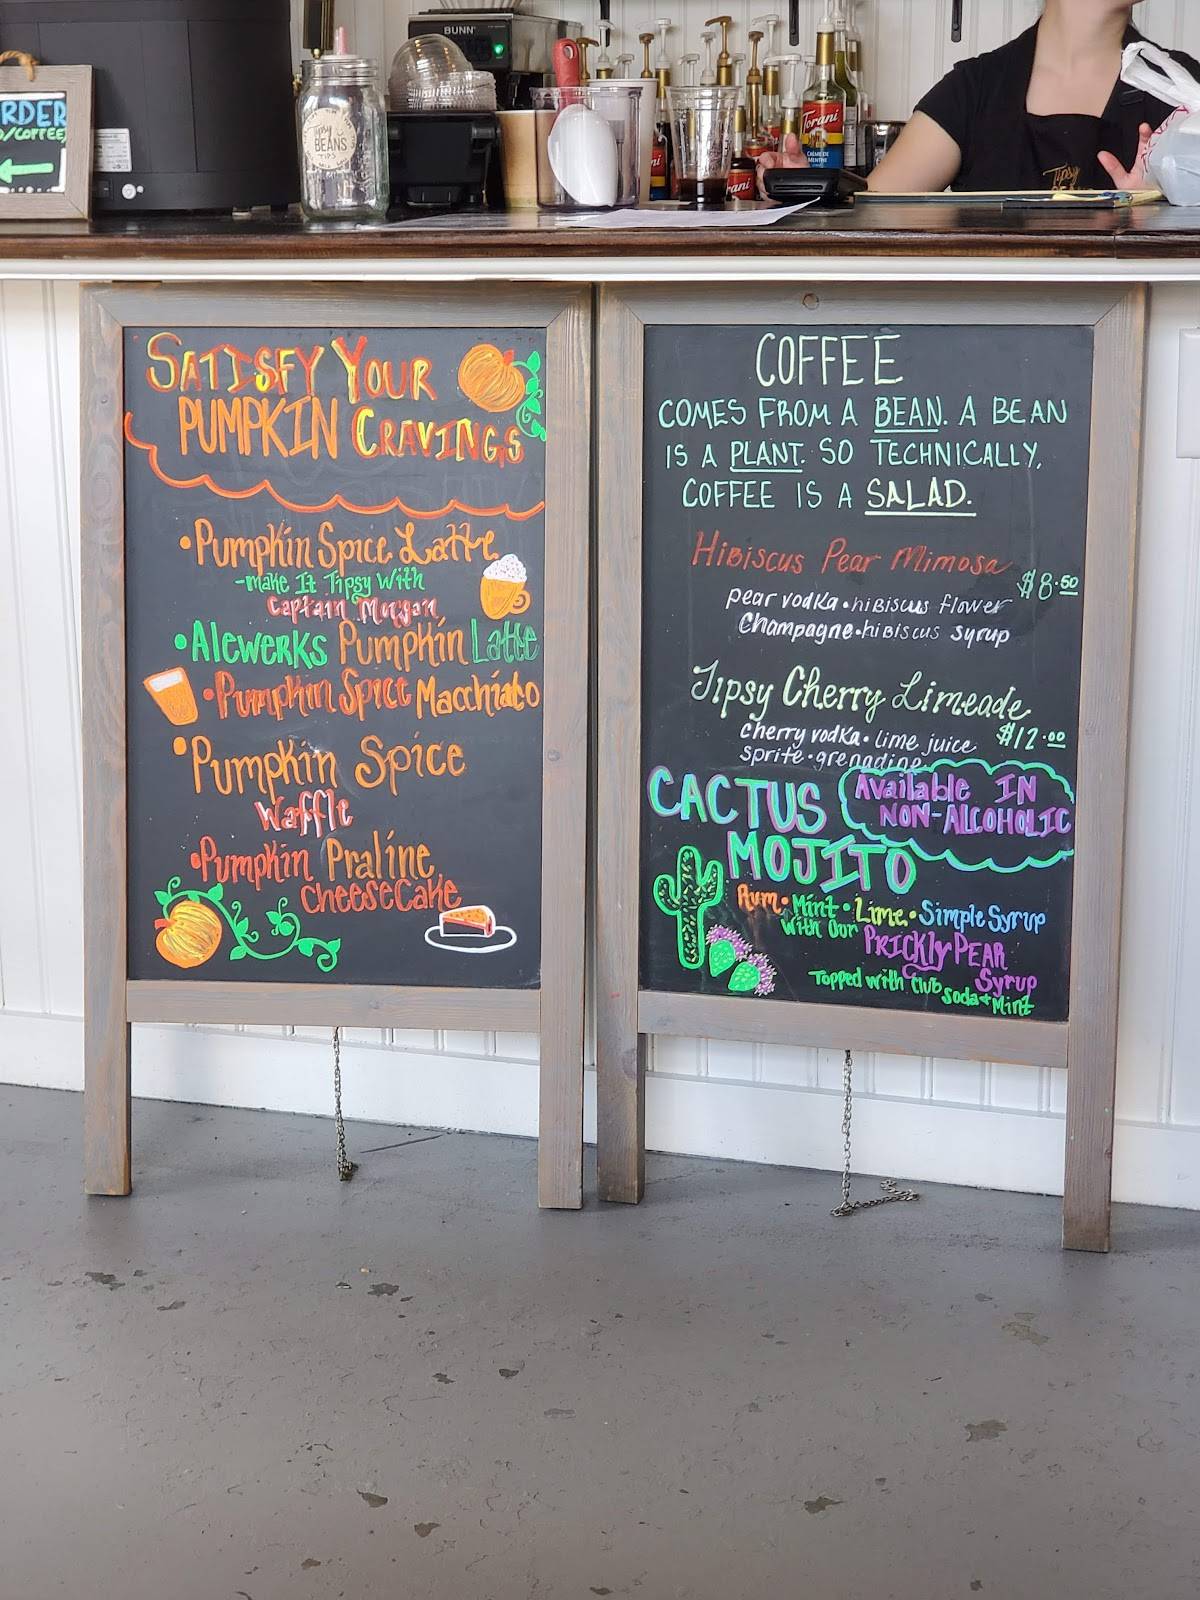 BUNN
RDER
D/COFFEE
Tipsy
BEANS
TIPS
Torani
CRÈME DE
MENTHE
ani
Tipsy
SATISFY YOUR
PUMPKIN CRAVINGS
•Pumpkin Spice Latte
-make It Tipsy With
Captain Morgan
•Alewerks Pumpkin Latte
•Pumpkin Spice Macchiato
•Pumpkin Spice
Waffle
•Pumpkin Praline
CheeseCake
COFFEE
COMES FROM A BEAN. A BEAN
IS A PLANT. SO TECHNICALLY,
COFFEE IS A SALAD.
Hibiscus Pear Mimosa
$8.50
pear vodka•hibiscus flower
Champagne•hibiscus syrup
Tipsy Cherry Limeade
$12.00
cherry vodka•lime juice
sprite•grenadine
CACTUS
MOJITO
Available IN
NON-ALCOHOLIC
Rum•Mint•Lime•Simple Syrup
With Our PRICKLY PEAR
Syrup
Topped with Club
Soda+Mint